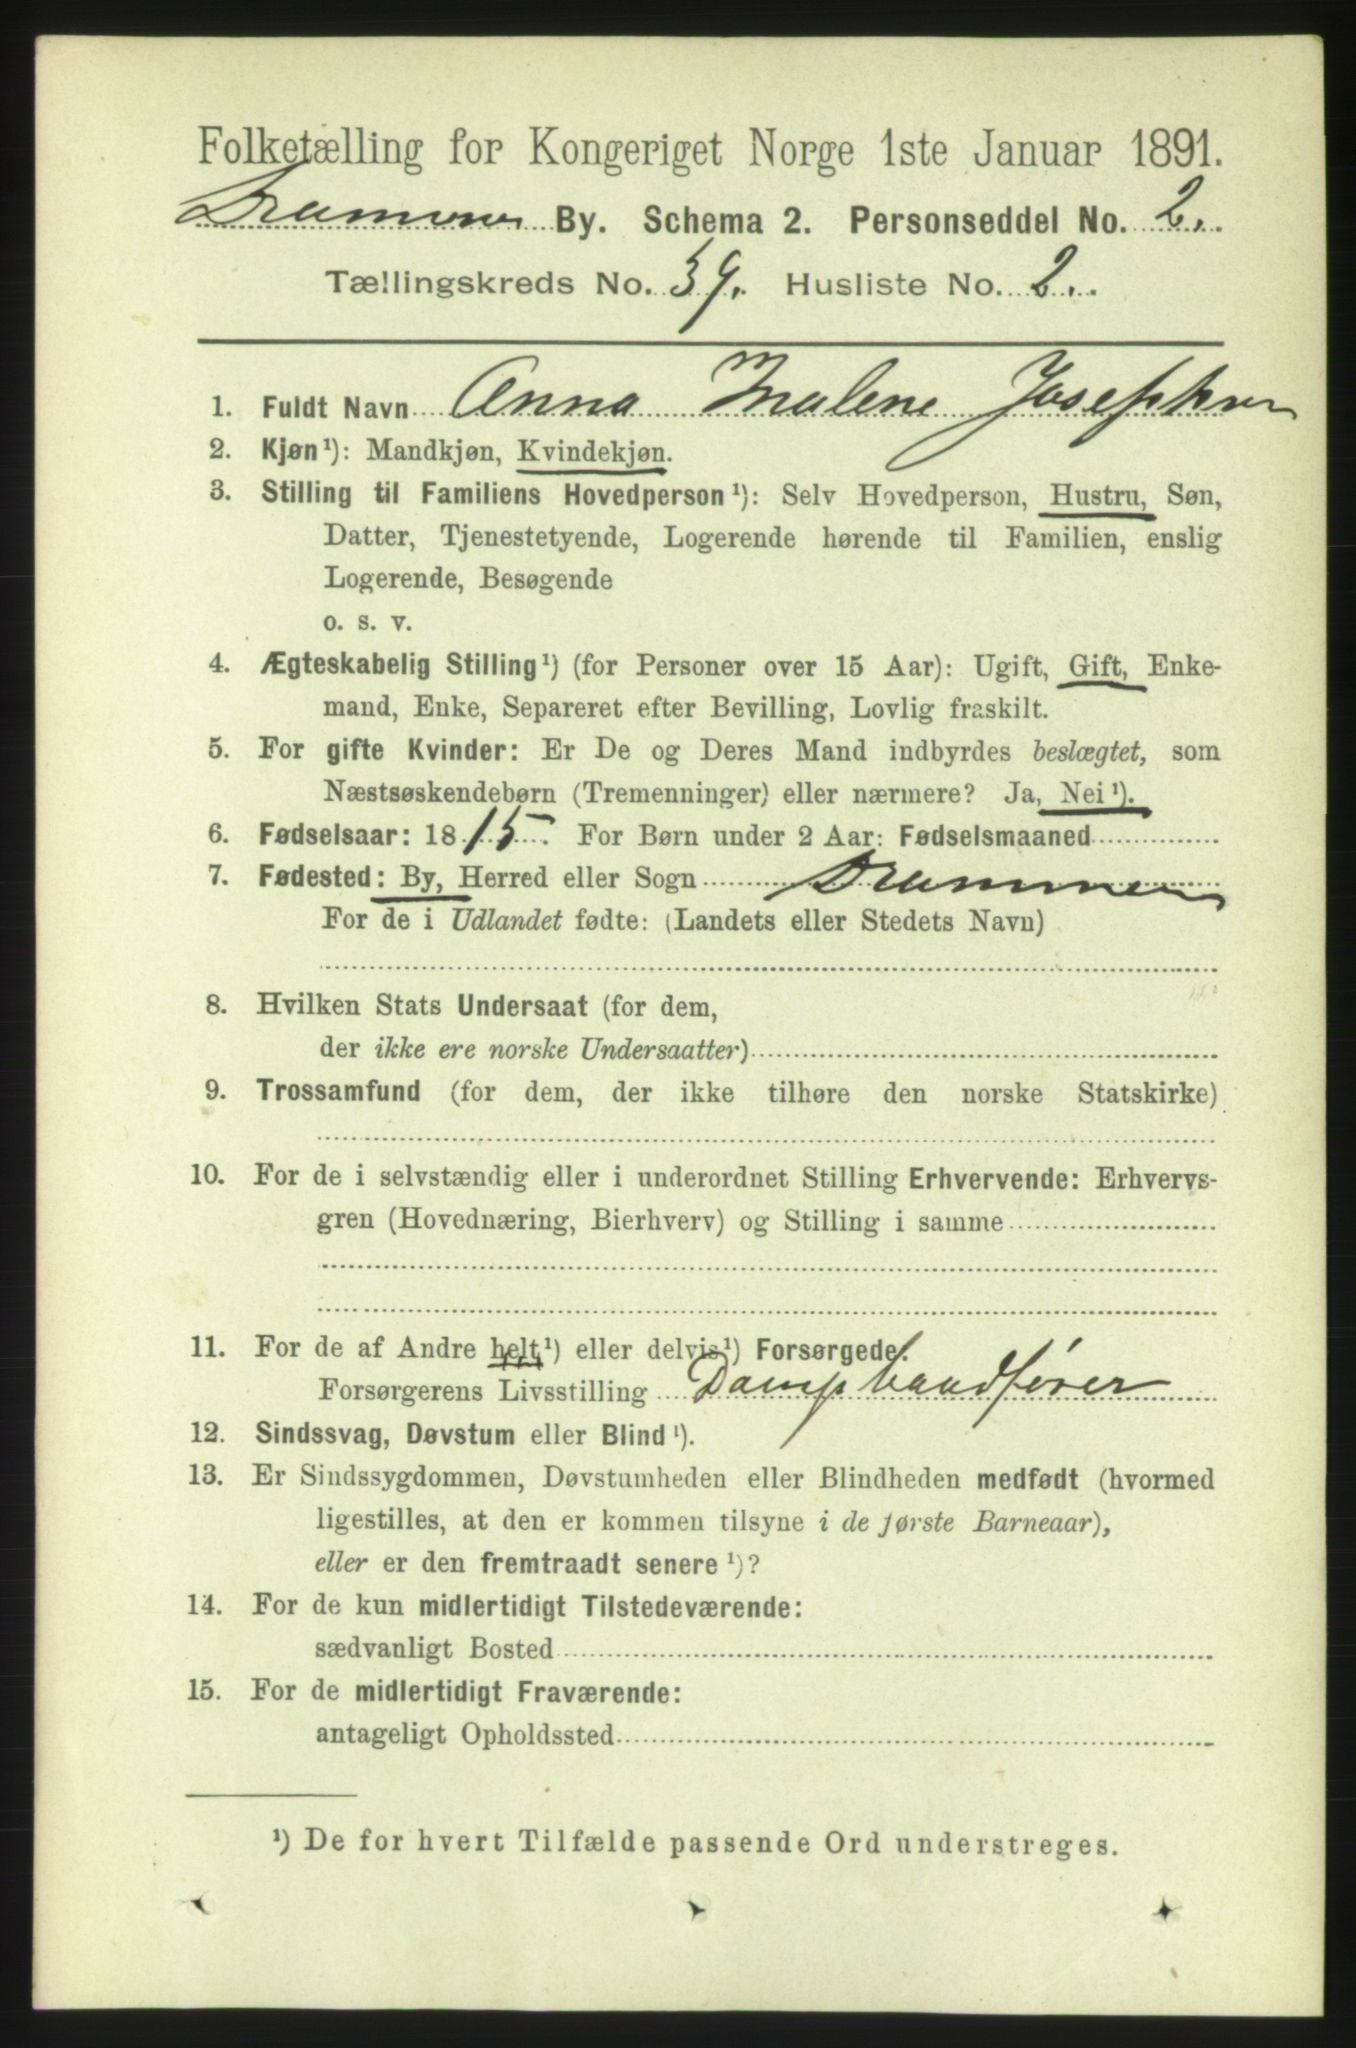 Folketælling for Kongeriget Norge 1ste Januar 1891.
Drammens By. Schema 2. Personseddel No. 2.
Tællingskreds No. 39. Husliste No. 2.
1. Fuldt Navn Anna Malene Josephsen
2. Kjøn¹): Mandkjøn, Kvindekjøn.
3. Stilling til Familiens Hovedperson¹): Selv Hovedperson, Hustru, Søn,
Datter, Tjenestetyende, Logerende hørende til Familien, enslig
Logerende, Besøgende
o. s. v.
4. Ægteskabelig Stilling¹) (for Personer over 15 Aar): Ugift, Gift, Enke-
mand, Enke, Separeret efter Bevilling, Lovlig fraskilt.
5. For gifte Kvinder: Er De og Deres Mand indbyrdes beslægtet, som
Næstsøskendebørn (Tremenninger) eller nærmere? Ja, Nei¹).
6. Fødselsaar: 1815. For Børn under 2 Aar: Fødselsmaaned
7. Fødested: By, Herred eller Sogn Drammen
For de i Udlandet fødte: (Landets eller Stedets Navn)
8. Hvilken Stats Undersaat (for dem,
der ikke ere norske Undersaatter)
9. Trossamfund (for dem, der ikke tilhøre den norske Statskirke)
10. For de i selvstændig eller i underordnet Stilling Erhvervende: Erhvervs-
gren (Hovednæring, Bierhverv) og Stilling i samme
11. For de af Andre helt¹) eller delvis¹) Forsørgede.
Forsørgerens Livsstilling Dampbaadfører
12. Sindssvag, Døvstum eller Blind¹).
13. Er Sindssygdommen, Døvstumheden eller Blindheden medfødt (hvormed
ligestilles, at den er kommen tilsyne i de første Barneaar),
eller er den fremtraadt senere¹)?
14. For de kun midlertidigt Tilstedeværende:
sædvanligt Bosted
15. For de midlertidigt Fraværende:
antageligt Opholdssted
¹) De for hvert Tilfælde passende Ord understreges.